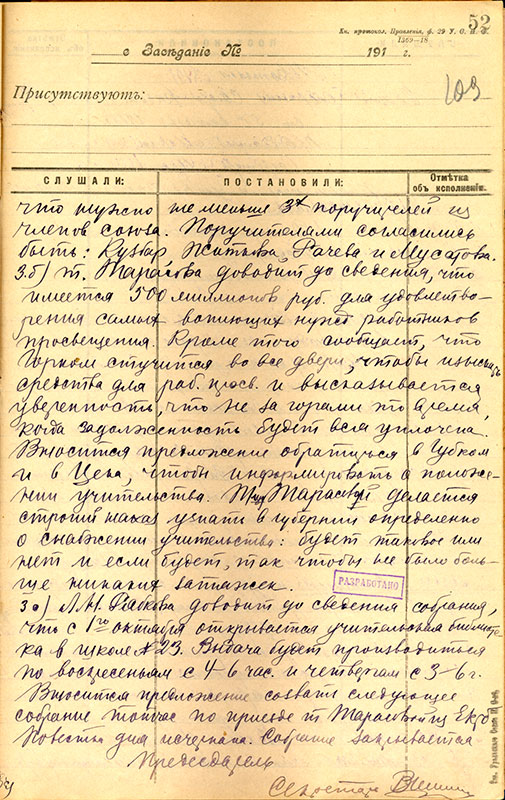 52
Кн. протокол. Правленія, ф. 29 У. О.
1369—18
с Засѣданіе № 191 г.
103
Присутствуютъ:
СЛУШАЛИ: ПОСТАНОВИЛИ: Отмѣтка объ исполненіи.
что нужно не меньше 3х поручителей из
членов союза. Поручителями согласились
быть: Житкова, Рачева и Мусатова.
3.б) т. Тарасова доводит до сведения, что
имеется 500 миллионов руб. для удовлетво-
рения самых вопиющих нужд работников
просвещения. Кроме того сообщает, что
Горком стучится во все двери, чтобы изыскать
средства для раб. просв. и высказывается
уверенность, что не за горами то время,
когда задолженность будет вся уплочена.
Вносится предложение обратиться в Губком
и в Цека, чтобы информировать о положе-
нии учительства. Тарасовой делается
строгий наказ узнать в губернии определенно
о снабжении учительства: будет таковое или
нет и если будет, так чтобы не было боль-
ше никаких затяжек.
РАЗРАБОТАНО
3в) Л.Н. доводит до сведения собрания,
что с 1го октября открывается учительская библиоте-
ка в школе №23. Выдача будет производиться
по воскресеньям с 4-6 час. и четвергам с 3-6 г.
Вносится предложение созвать следующее
собрание тотчас по приезде т Тарасовой из Екб
Повестка дня исчерпана. Собрание закрывается
Председатель
Секретарь